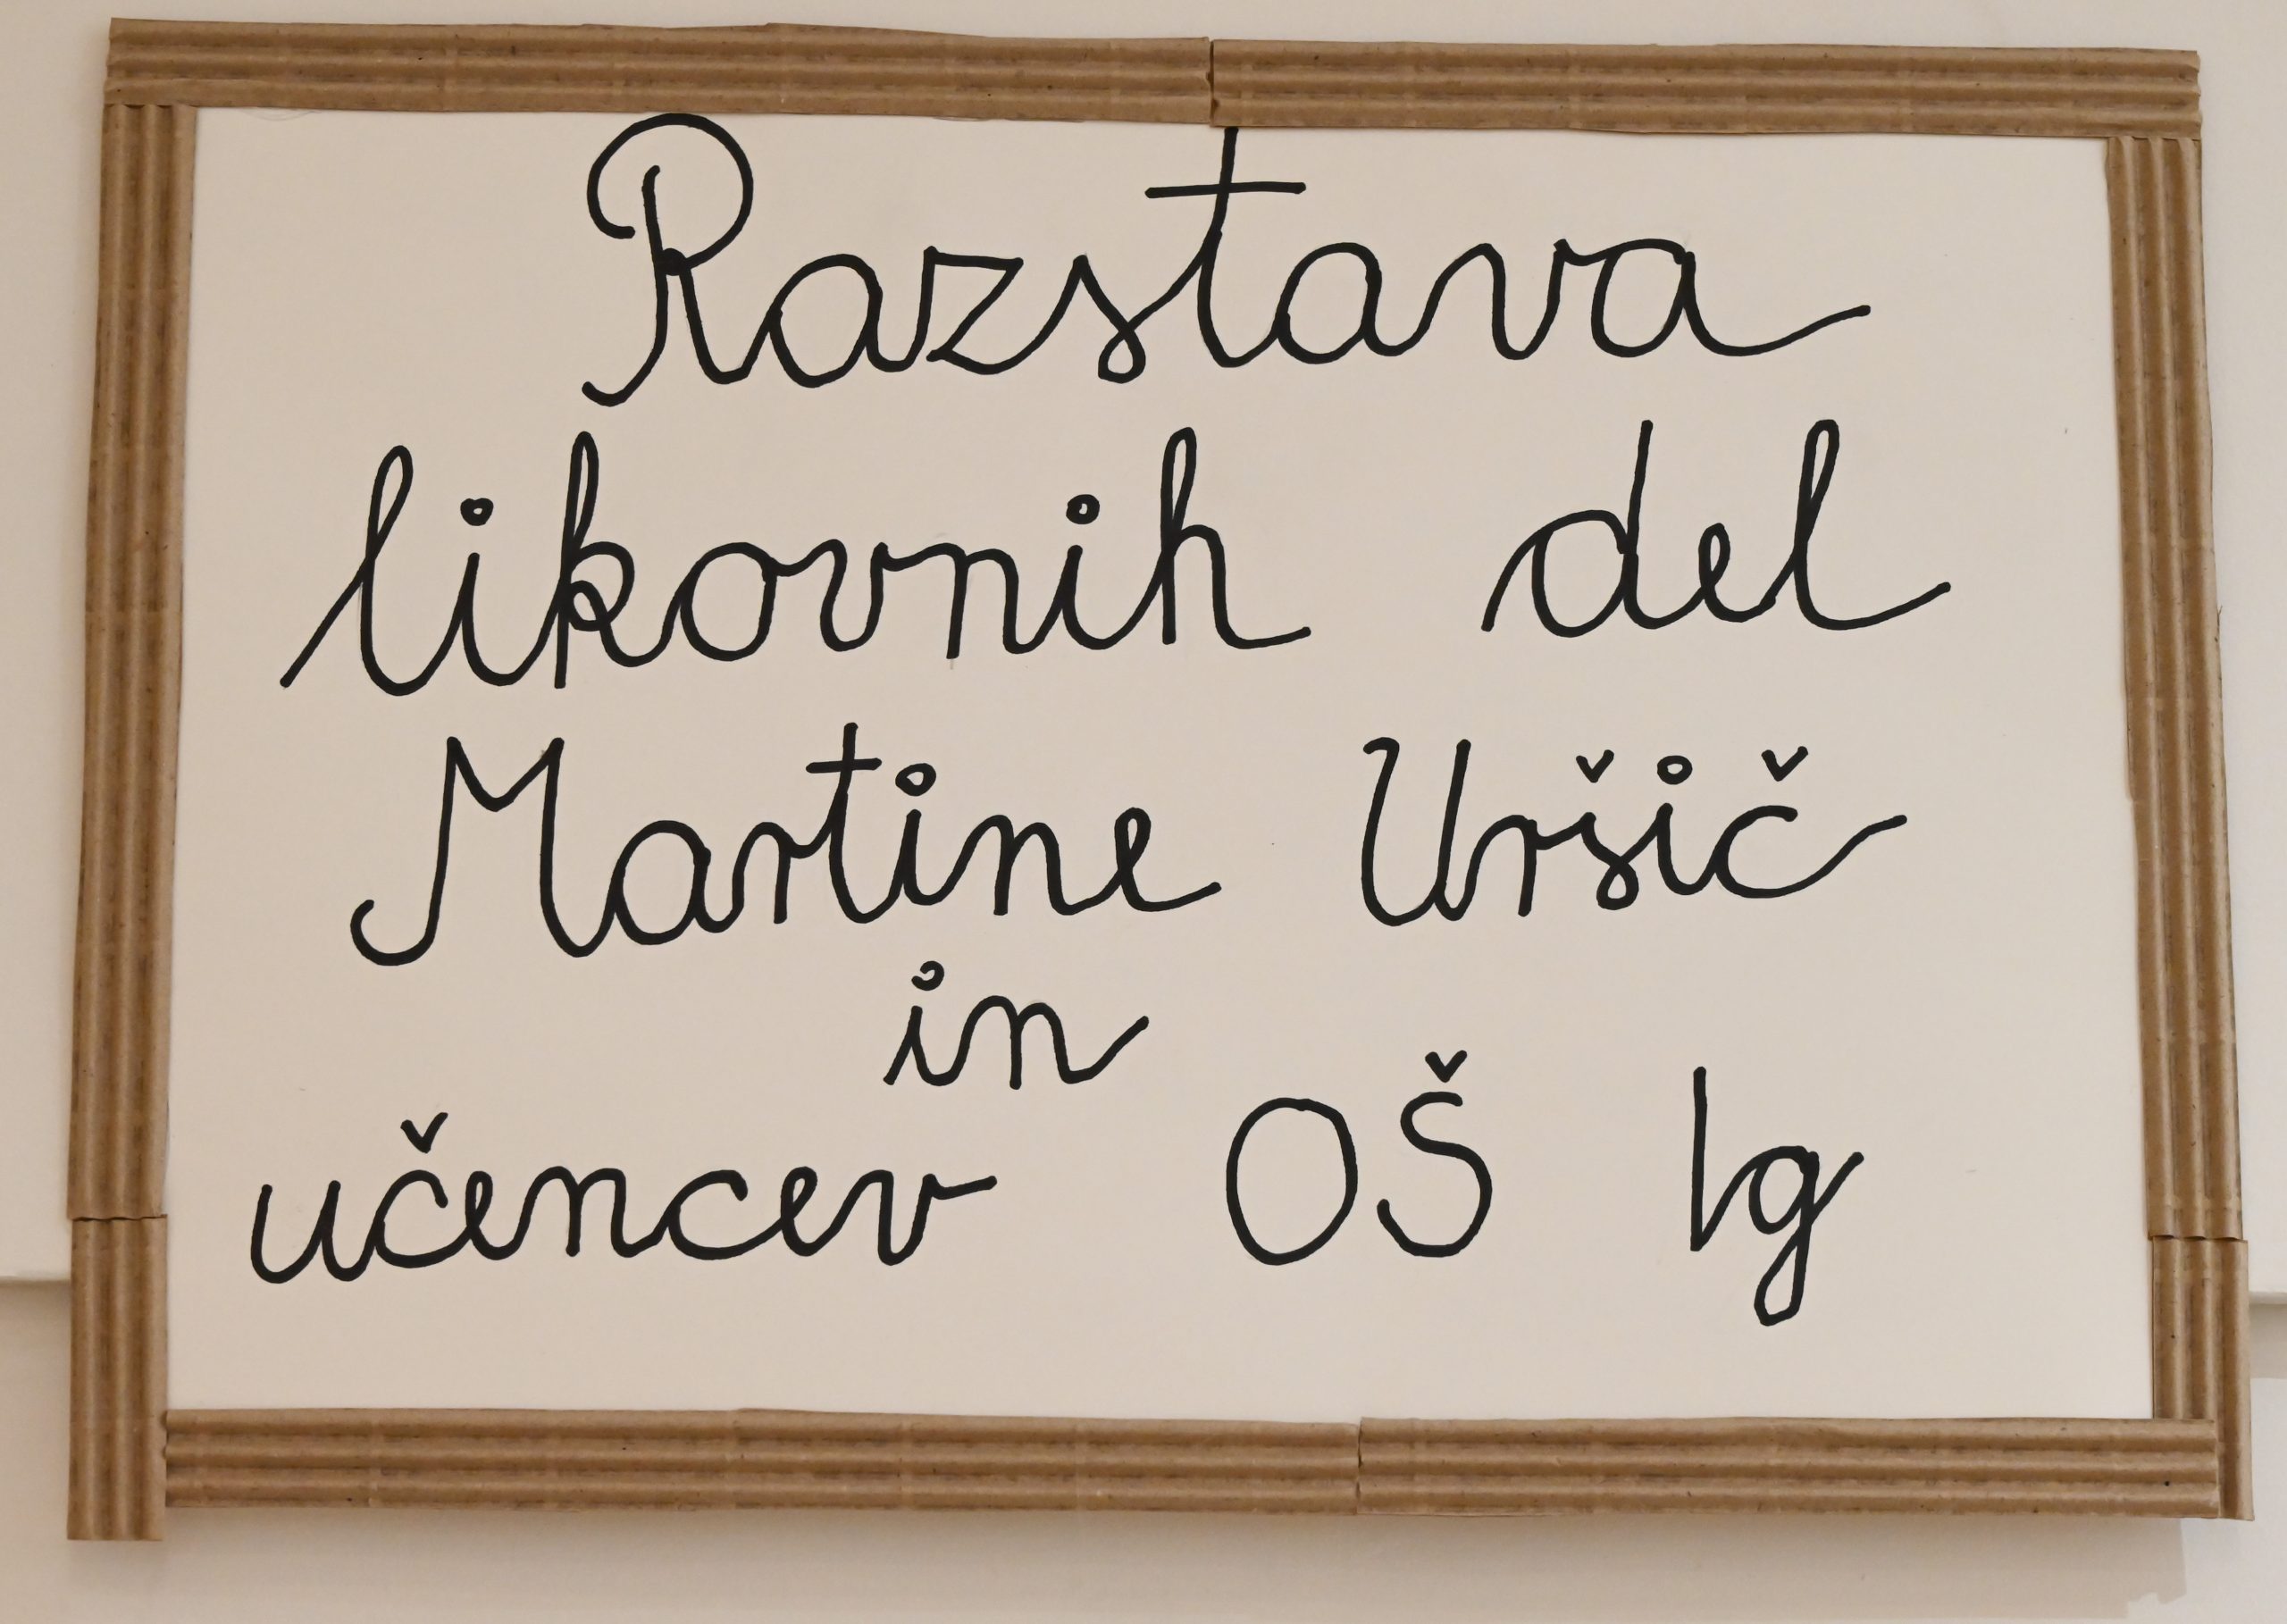 Razstava
likovnih del
Martine Uršič
in
učencev OŠ Ig